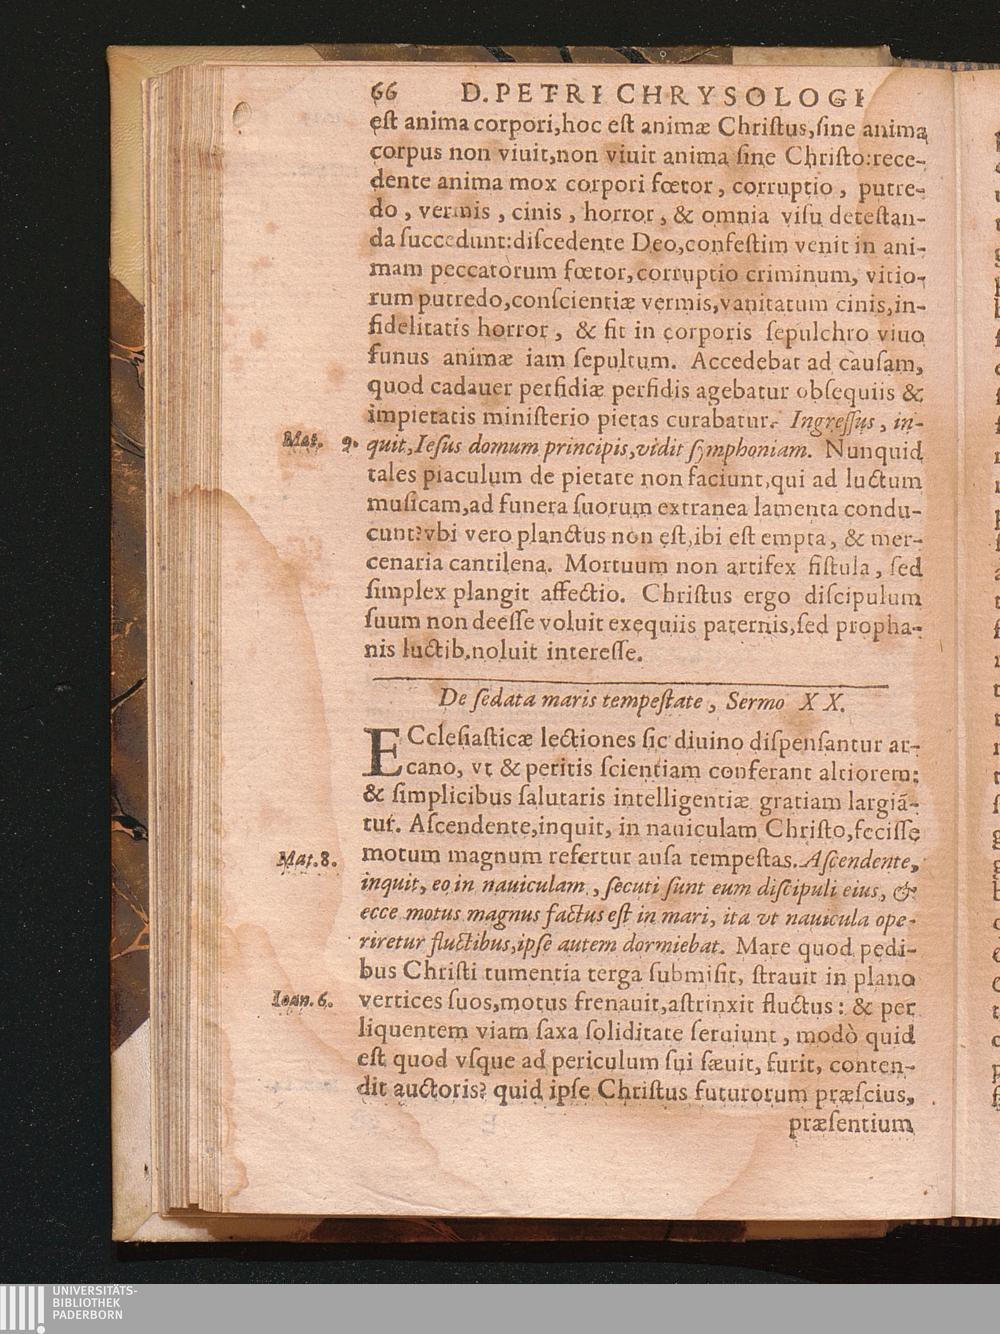 66 D. PETRI CHRYSOLOGI
est anima corpori, hoc est animæ Christus, sine anima
corpus non viuit, non viuit anima sine Christo: rece-
dente anima mox corpori fœtor, corruptio, putre-
do, vermis, cinis, horror, & omnia visu detestan-
da succedunt: discedente Deo, confestim venit in ani-
mam peccatorum fœtor, corruptio criminum, vitio-
rum putredo, conscientiæ vermis, vanitatum cinis, in-
fidelitatis horror, & fit in corporis sepulchro viuo
funus animæ iam sepultum. Accedebat ad causam,
quod cadauer perfidiæ perfidis agebatur obsequiis &
impietatis ministerio pietas curabatur. Ingressus, in-
Mat. 9. quit, Iesus domum principis, vidit symphoniam. Nunquid
tales piaculum de pietate non faciunt, qui ad luctum
musicam, ad funera suorum extranea lamenta condu-
cunt? vbi vero planctus non est, ibi est empta, & mer-
cenaria cantilena. Mortuum non artifex fistula, sed
simplex plangit affectio. Christus ergo discipulum
suum non deesse voluit exequiis paternis, sed propha-
nis luctib. noluit interesse.
De sedata maris tempestate, Sermo XX.
ECclesiasticæ lectiones sic diuino dispensantur ar-
cano, vt & peritis scientiam conferant altiorem:
& simplicibus salutaris intelligentiæ gratiam largiã-
tur. Ascendente, inquit, in nauiculam Christo, fecisse
Mat. 8. motum magnum refertur ausa tempestas. Ascendente,
inquit, eo in nauiculam, secuti sunt eum discipuli eius, &
ecce motus magnus factus est in mari, ita vt nauicula ope-
riretur fluctibus, ipse autem dormiebat. Mare quod pedi-
bus Christi tumentia terga submisit, strauit in plano
Ioan. 6. vertices suos, motus frenauit, astrinxit fluctus: & per
liquentem viam saxa soliditate seruiunt, modò quid
est quod vsque ad periculum sui sæuit, furit, conten-
dit auctoris? quid ipse Christus futurorum præscius,
præsentium
UNIVERSITÄTS-
BIBLIOTHEK
PADERBORN